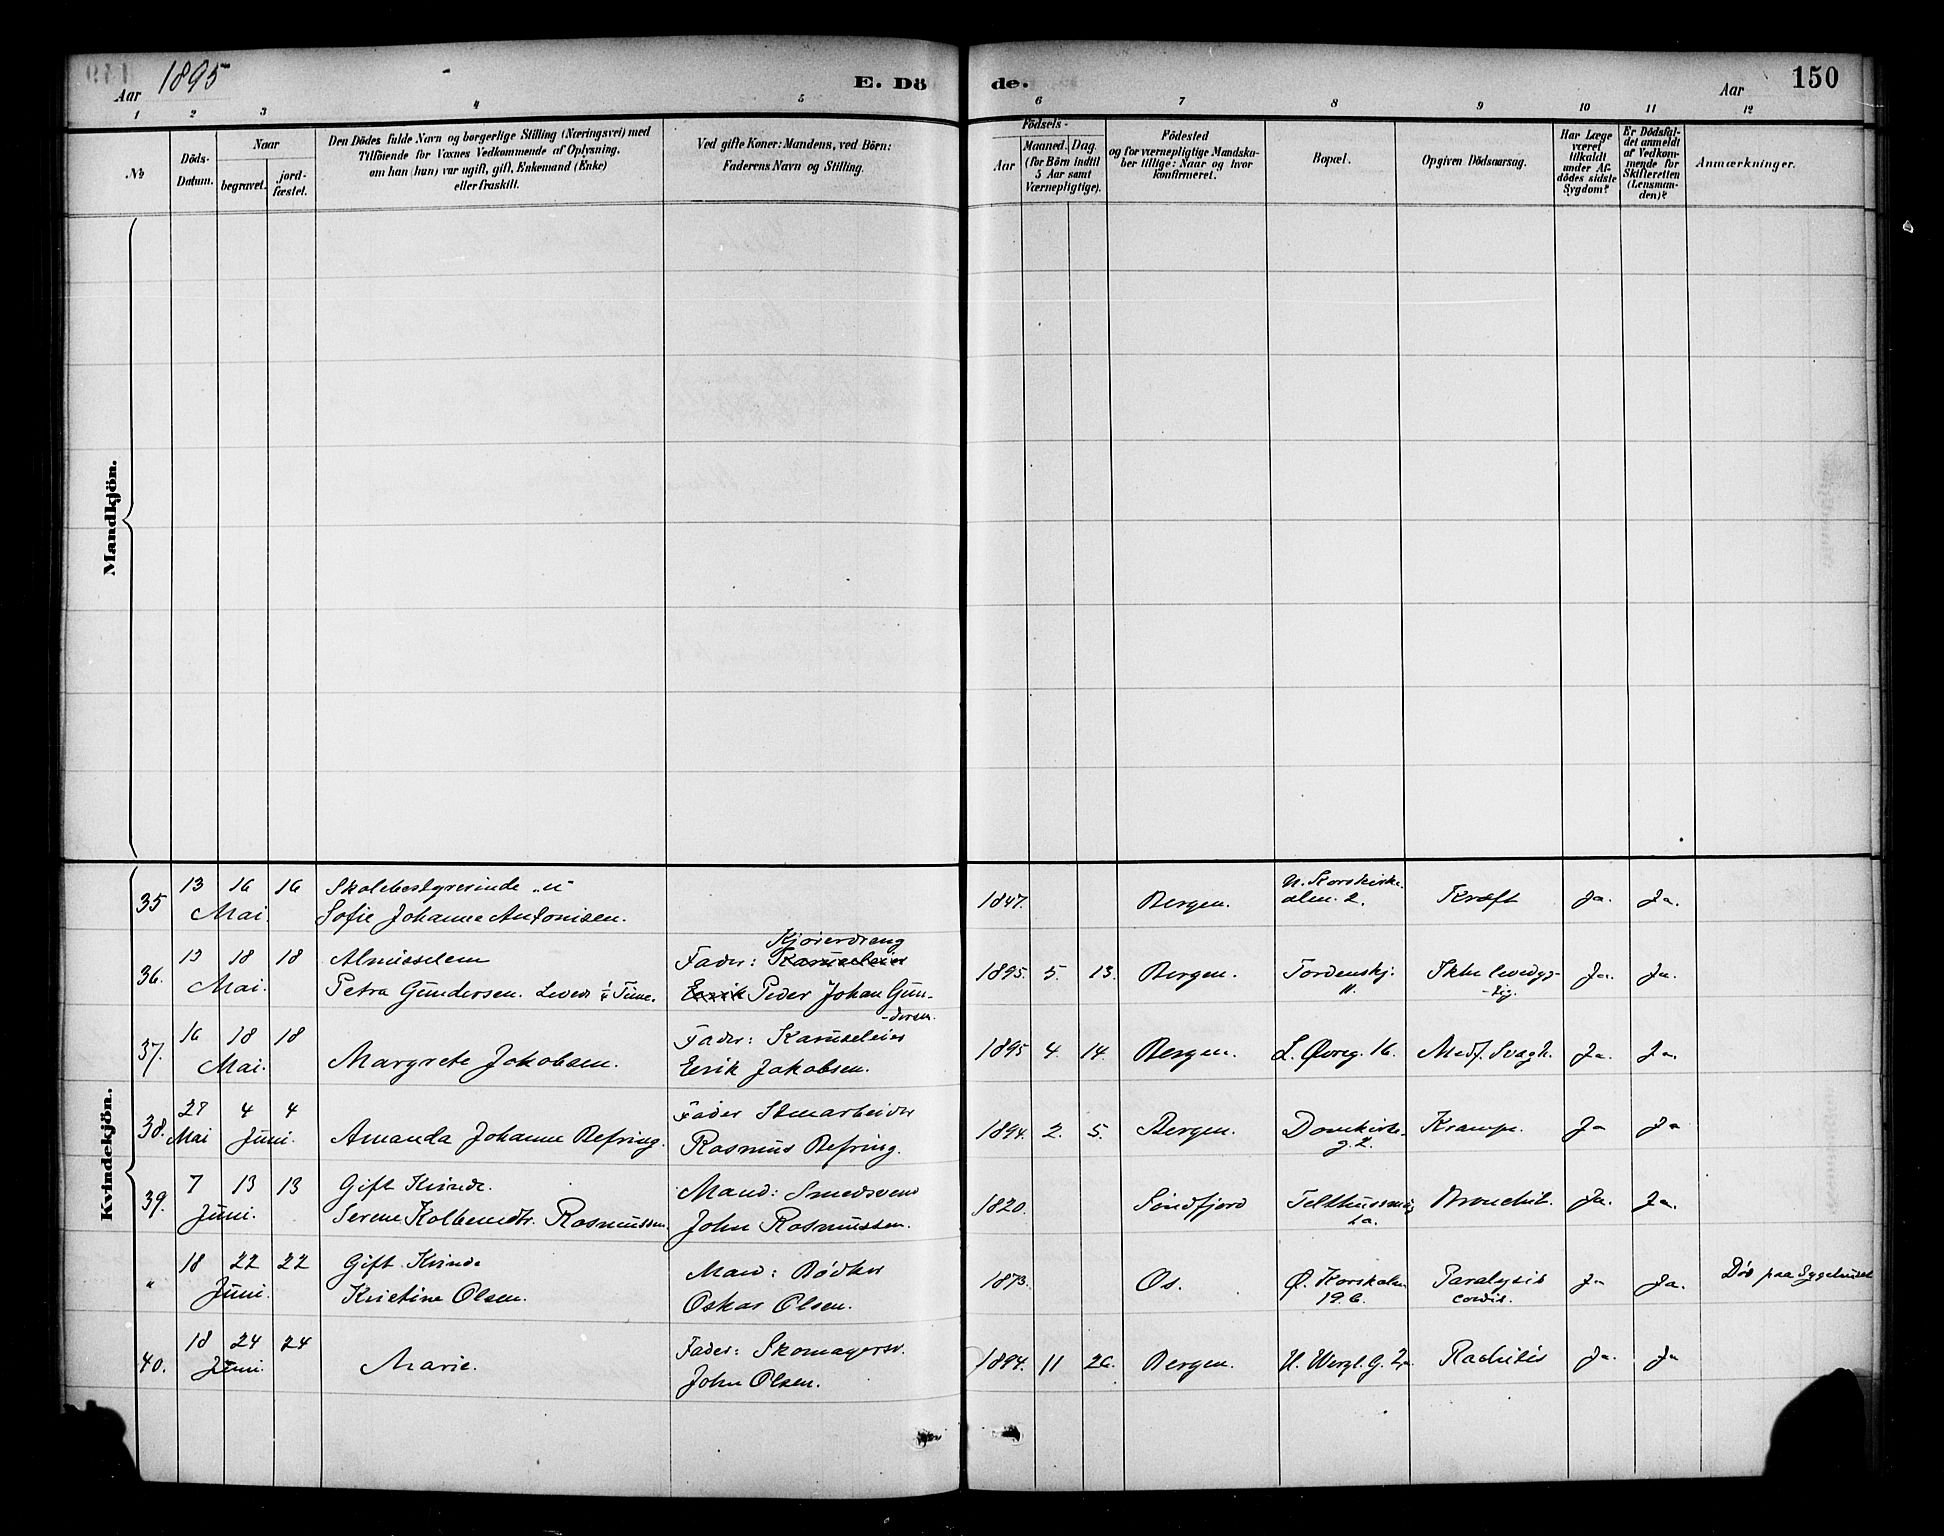 1895
Aar
E. Dö
de.
Aar
150
1 2 3 4 5 6 7 8 9 10 11 12
№
Döds-
Datum.
Naar
begravet.
jord-
fæstet.
Den Dödes fulde Navn og borgerlige Stilling (Næringsvei) med
Tilföiende for Voxnes Vedkommende af Oplysning,
om han (hun) var ugift, gift, Enkemand (Enke)
eller fraskilt.
Ved gifte Koner: Mandens, ved Börn:
Faderens Navn og Stilling.
Födsels-
Aar
Maaned. Dag.
(for Börn indtil
5 Aar samt
Værnepligtige).
Födested
og for værnepligtige Mandska-
ber tillige: Naar og hvor
konfirmeret.
Bopæl.
Opgiven Dödsaarsag.
Har Læge
været
tilkaldt
under Af-
dödes sidste
Sygdom?
Er Dödsfal-
det anmeldt
af Vedkom-
mende for
Skifteretten
(Lensman-
den)?
Anmærkninger.
Mandkjön.
Kvindekjön.
35 13 16 16 Skolebestyrerinde „u“
Mai. Sofie Johanne Antonisen.
1847. Bergen. N. Korskirke-
alm. 2. Kræft Ja. Ja.
36. 13 18 18
Mai.
Petra Gundersen. Levede ¼ Time.
Kjørerdreng
Fader: Karuseleier
Eerik Peder Johan Gun-
-dersen.
1895. 5. 13. Bergen. Tordenskj.
11. Ikke levedyg-
-tig. Ja. Ja.
37. 16 18 18
Mai. Margrete Jakobsen.
Fader: Karuseleier
Eerik Jakobsen.
1895 4. 14. Bergen. L. Øvreg. 16. Medf. Svagh. Ja. Ja.
38. 27 4 4
Mai Juni. Amanda Johanne Refring.
Fader Stenarbeider
Rasmus Refring.
1894. 2. 5. Bergen. Domkirke-
g. Krampe. Ja Ja
39. 7 13 13 Gift Kvinde.
Juni. Serene Kolbensdtr. Rasmussen.
Mand: Smedsvend
John Rasmussen.
1820. Søndfjord Bronchit. Ja. Ja.
„ 18 22 22 Gift Kvinde
Juni. Kristine Olsen.
Mand: Bødker
Oskar Olsen.
1873. Os. Ø. Korskalm.
19.6. Paralysis
cordis. Ja Ja. Død paa Sygehuset
40. 18 24 24
Juni. Marie.
Fader: Skomagersv.
John Olsen.
1894. 11 26. Bergen. Rachitis Ja. Ja